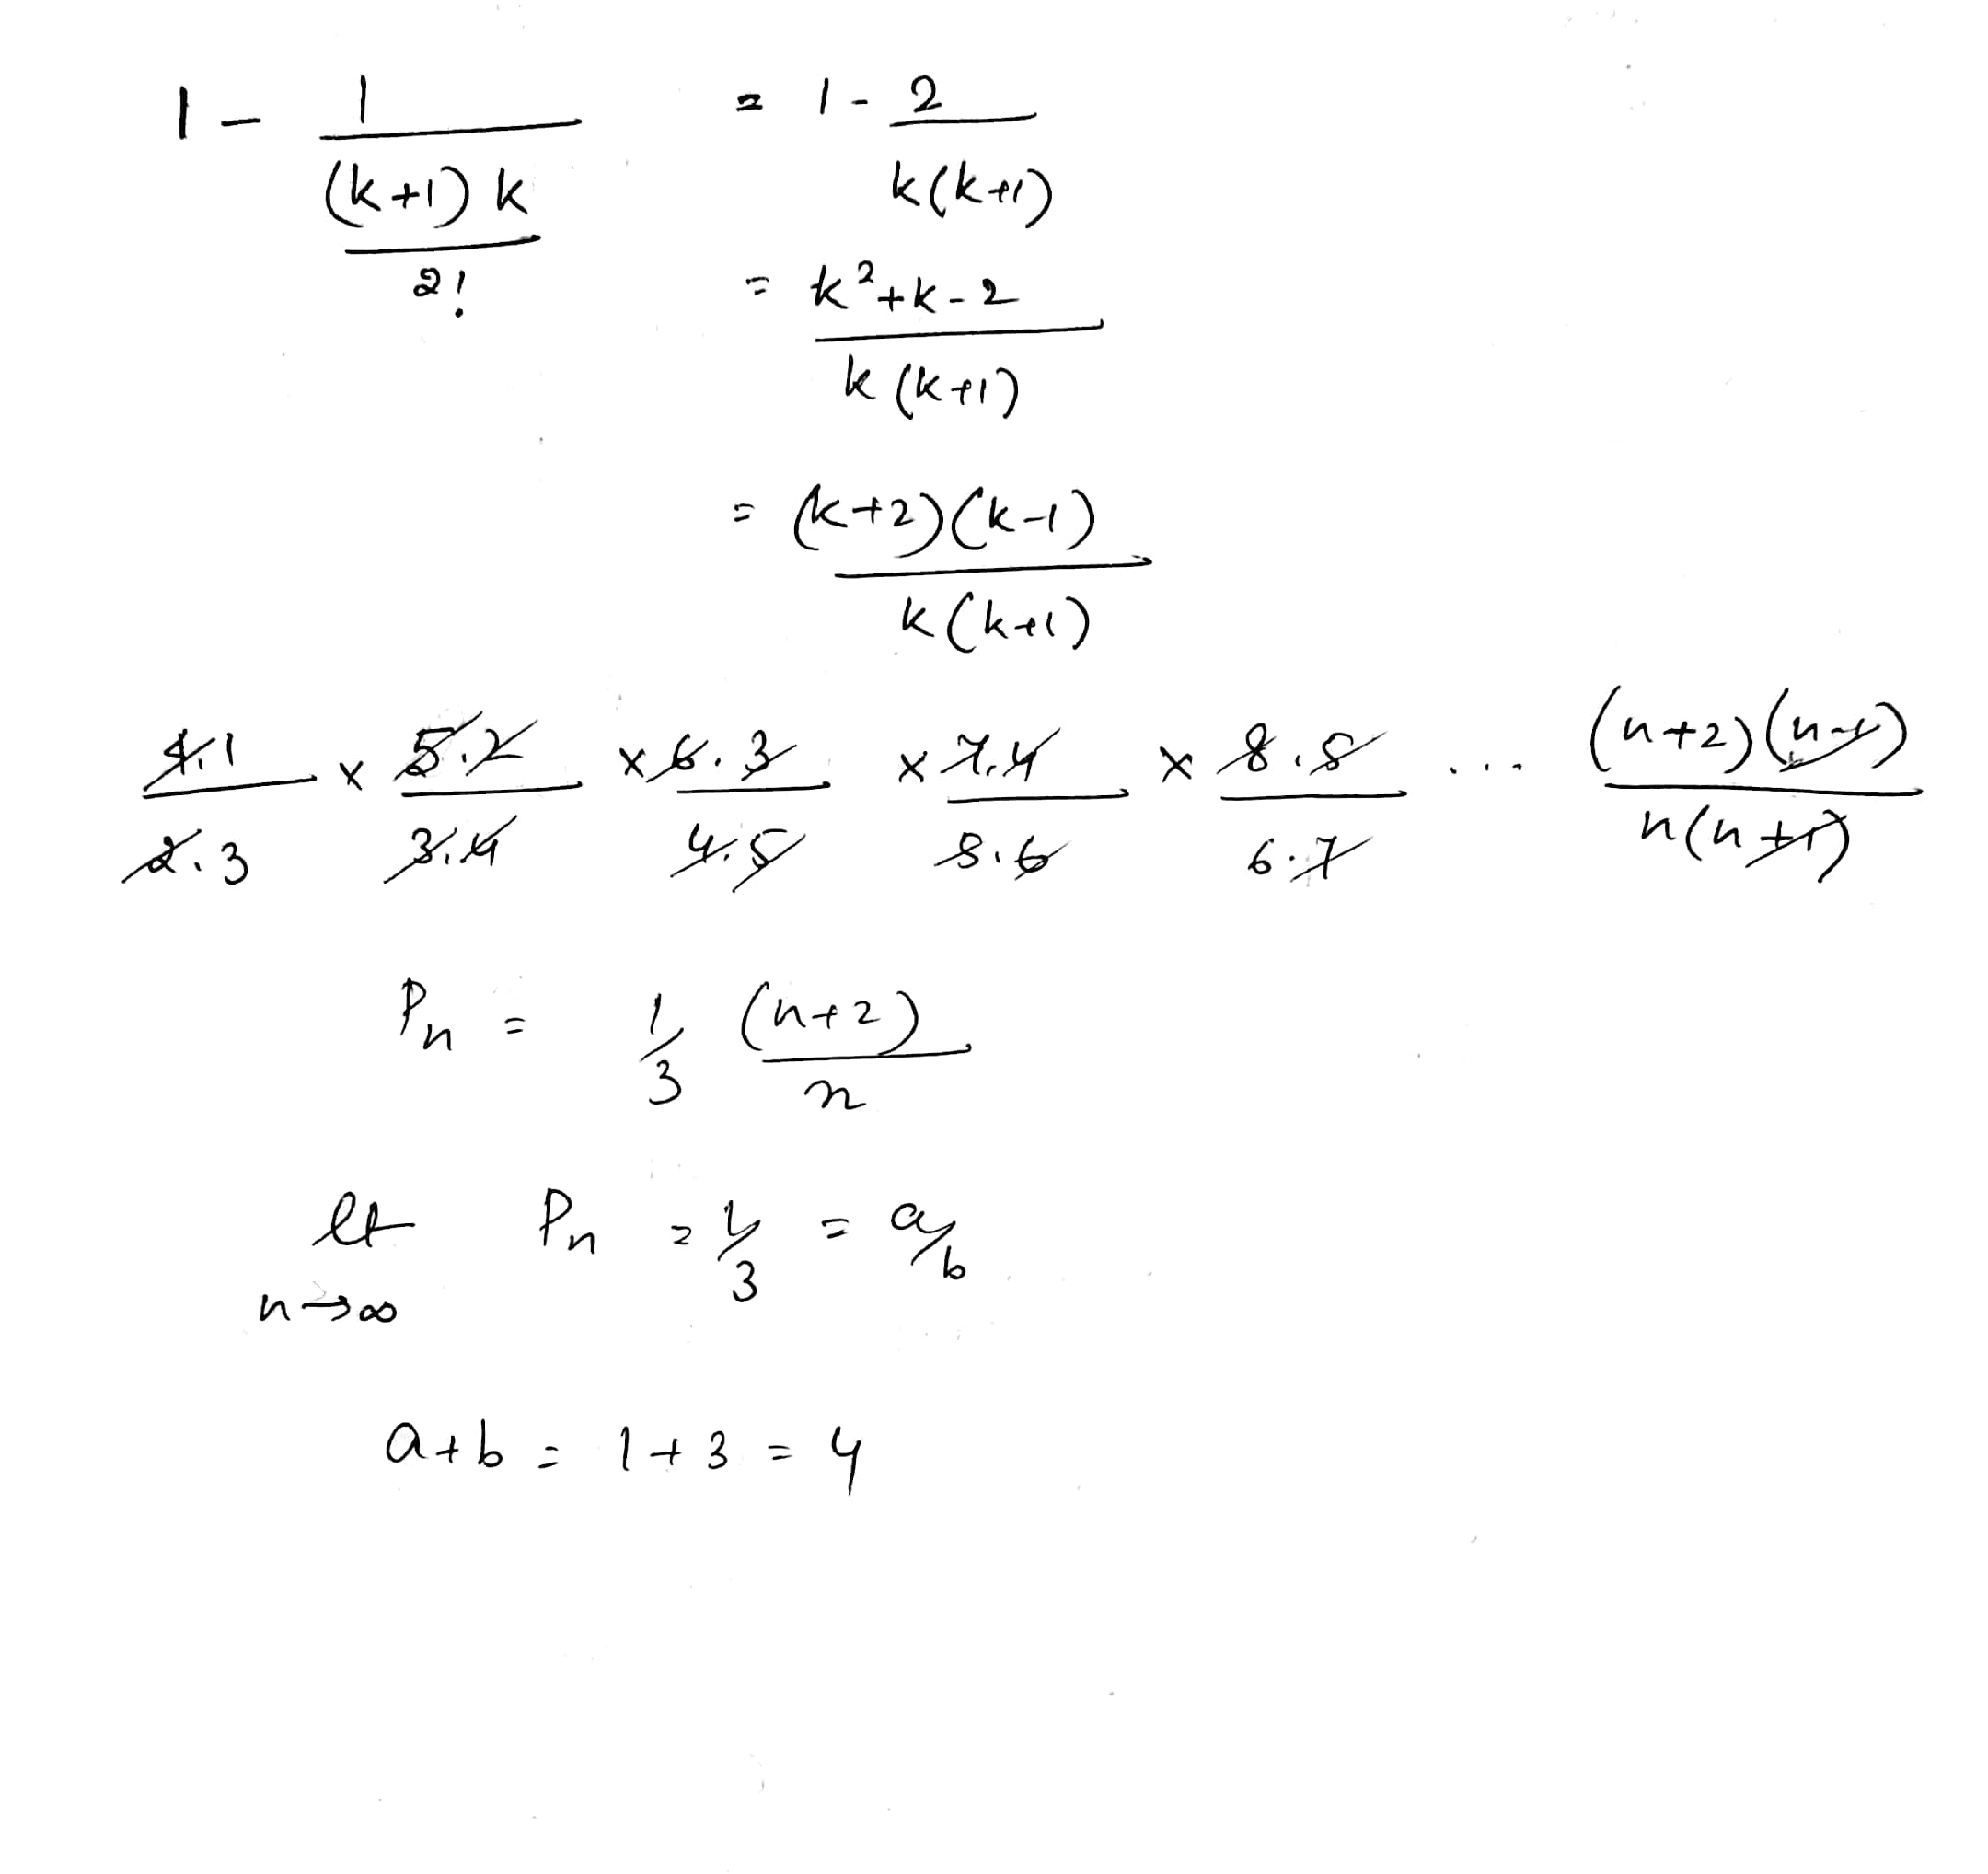 1 - 1/((k+1)k/2!) = 1 - 2/(k(k+1))
= (k²+k-2)/(k(k+1))
= (k+2)(k-1)/(k(k+1))
4.1/2.3 × 5.2/3.4 × 6.3/4.5 × 7.4/5.6 × 8.5/6.7 ... (n+2)(n-1)/(n(n+1))
Pn = 1/3 (n+2)/n
lt n→∞ Pn = 1/3 = a/b
a+b = 1+3 = 4